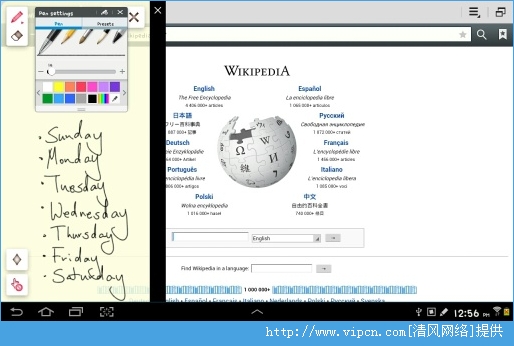 Pen settings
Pen
Presets
Sunday
Monday
Tuesday
Wednesday
Thursday
Friday
Saturday
WIKIPEDIA
English
The Free Encyclopedia
4 406 000+ articles
Español
La enciclopedia libre
1 066 000+ artículos
日本語
フリー百科事典
887 000+ 記事
Русский
Свободная энциклопедия
1 072 000+ статей
Deutsch
ie Enzyklopädie
000+ Artikel
Français
L'encyclopédie libre
1 466 000+ articles
Português
ópédia livre
000+ artigos
Italiano
L'enciclopedia libera
1 085 000+ voci
Polski
Wolna encyklopedia
1 016 000+ haseł
中文
自由的百科全書
740 000+ 條目
English
Find Wikipedia in a language:
1 000 000+
English • Español • Français • Italiano • Nederlands • Polski • Русский • Svenska
12:56 PM
http://www.vipcn.com[清风网络]提供